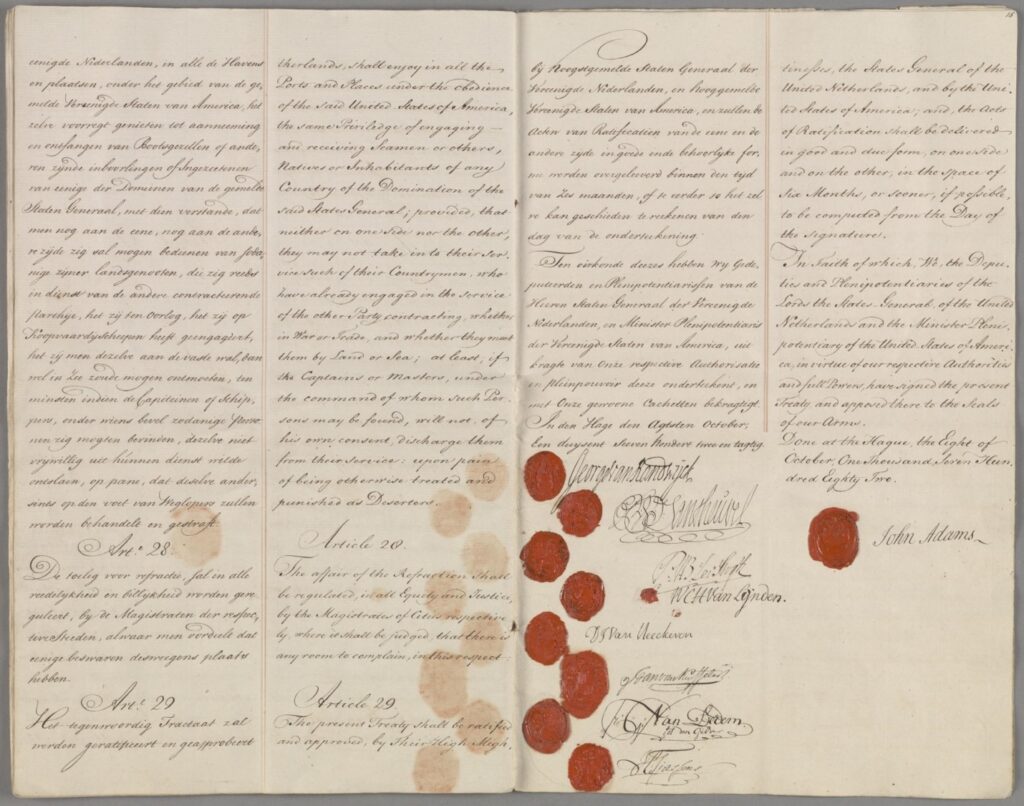 eenigde Nederlanden, in alle de Havens
en plaatsen, onder het gebied van de ge,
melde Vereenigde Staten van America, het
zelve voorregt genieten tot aanneeming
en ontfangen van Bootsgezellen of ande,
ren zijnde inboorlingen of Ingezetenen
van eenige der Domeinen van de gemelde
Staten Generaal, met dien verstande, dat
men nog aan de eene, nog aan de ande,
re zijde zig sal mogen bedienen van
nige zijner landsgenooten, die zig reeds
in dienst van de andere contracteerende
parthije, het zij ten Oorlog, het zij op
Koopvaardijschepen heeft geengageert,
het zij men dezelve aan de vaste wal, dan
wel in Zee zoude mogen ontmoeten, ten
minsten indien de Capiteinen of Schip,
pers, onder wiens bevel zodanige
nen zig mogten bevinden, dezelve niet
vrijwillig uit húnnen dienst wilde
ontslaen, op pane, dat deselve ander,
sints op den voet van Weglopers zullen
werden behandelt en gestraft.
Artl. 28
De toeleg voor refractie, sal in alle
reedelijkheid en billijkheid werden gere,
guleert, bij de Magistraten der respec,
tive Steeden, alwaar men oordeelt dat
eenige beswaren desweegens plaats
hebben.
Artl. 29
Het tegenwoordig Tractaat zal
werden geratificeert en geapprobeert
therlands, shall enjoy in all the
Ports and Places under the obedience
of the said United States of America,
the same Priviledge of engaging —
and receiving Seamen or others,
Natives or Inhabitants of any
Country of the Domination of the
said States General; provided, that
neither on one side nor the other,
they may not take into their Ser-
vice such of their Countrymen, who
have already engaged in the service
of the other Party contracting, whether
in War or Trade, and whether they meet
them by Land or Sea; at least, if
the Captains or Masters, under
the command of whom such Per-
sons may be found, will not, of
his own consent, discharge them
from their service: upon pain
of being otherwise treated and
punished as Deserters.
Article 28.
The affair of the Refraction shall
be regulated, in all Equity and Justice,
by the Magistrates of Cities respective
ly, where it shall be judged, that there is
any room to complain, in this respect.
Article 29
The present Treaty shall be ratified
and approved, by Their High Migh,
by Hoogstgemelde Staten Generaal der
Vereenigde Nederlanden, en Hooggemelte
Vereenigde Staten van America, en zullen de
Acten van Ratificatien van de eene en de
andere zijde in goede ende behoorlijke for,
me werden overgeleverd binnen den tijd
van zes maanden, of te eerder so het zel
ve kan geschieden te reekenen van den
dag van de ondertekening.
Ten oirkonde deezes hebben Wij Gede,
puteerden en Plenipotentiarissen van de
Heeren Staten Generaal der Vereenigde
Nederlanden, en Minister Plenipotentiaris
der Vereenigde Staten van America, uit
kragte van Onze respective Authorisatie
en pleinpouvoir deeze ondertekent, en
met Onze gewoone Cachetten bekragtigt.
In den Hage den Agtsten October,
Een duysent Seven Hondert twee en tagtig.
George van Randwijck
W C H Van Lijnden.
Van
Van
tinesses, the States General of the
United Netherlands, and by the Uni,
ted States of America; and, the Acts
of Ratification shall be delivered
in good and due form, on one side
and on the other, in the space of
Six Months, or sooner, if possible,
to be computed from the Day of
the signature.
In Faith of which, We, the Depu,
ties and Plenipotentiaries of the
Lords the States General of the United
Netherlands and the Minister Pleni-
potentiary of the United States of Ameri
ca, in virtue of our respective Authorities
and full Powers, have signed the present
Treaty and apposed thereto the Seals
of our Arms.
Done at the Hague, the Eight of
October, One Thousand Seven Hun-
dred Eighty Two.
John Adams